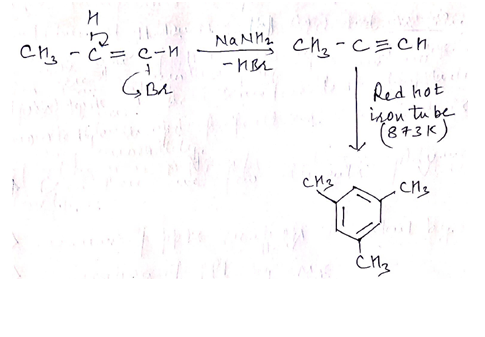 H
CH₃ - C = C - H NaNH₂ CH₃ - C ≡ CH
-HBr
Br
Red hot
iron tube
(873K)
CH₃ CH₃
CH₃